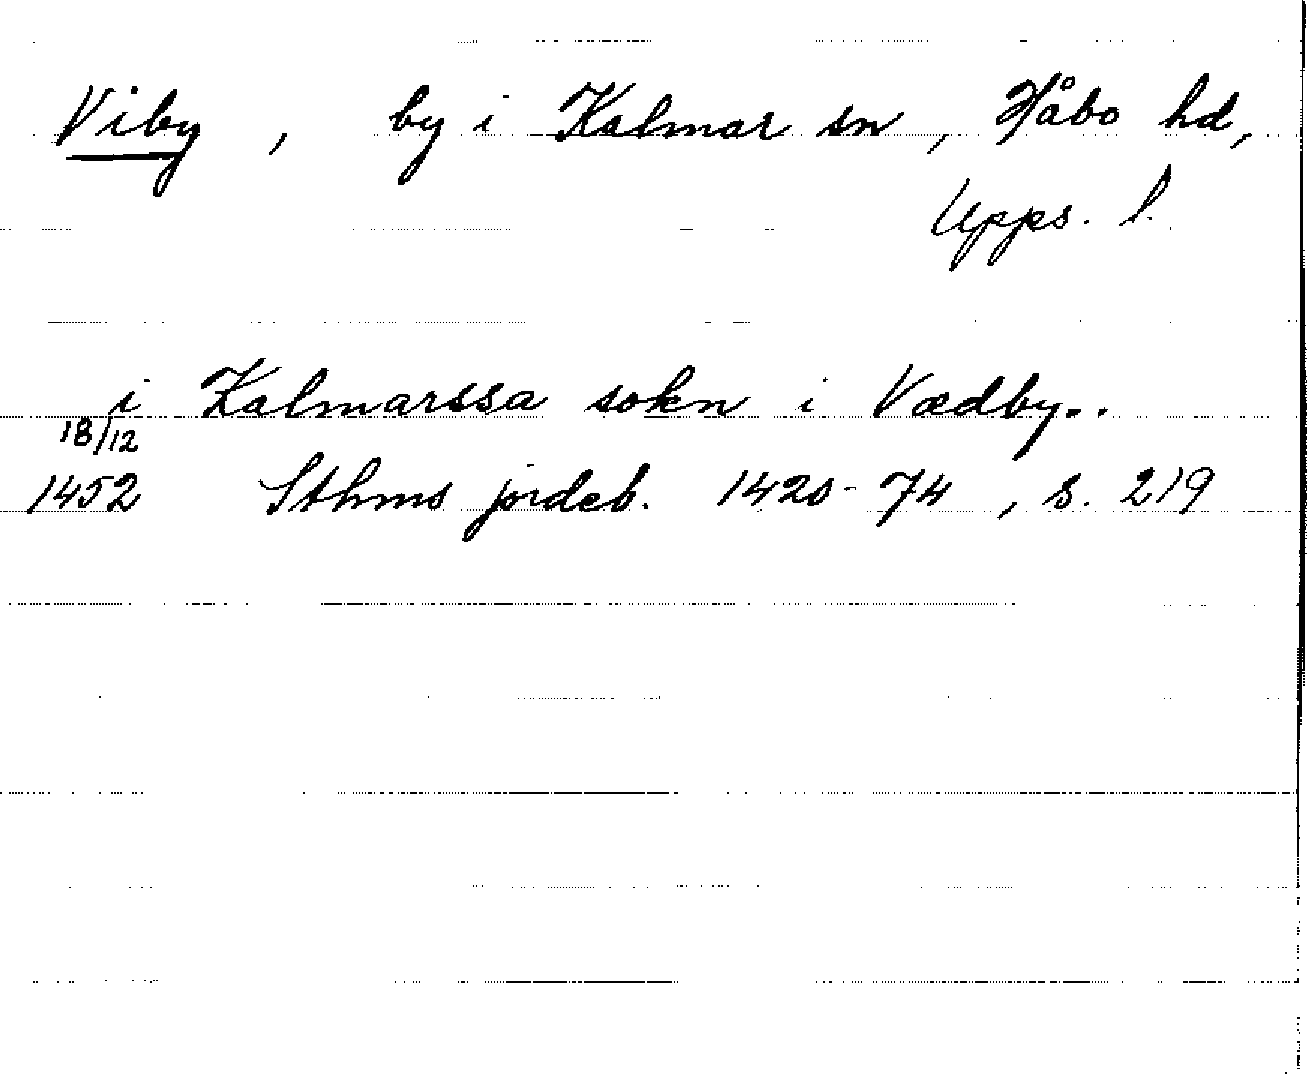 Viby, by i Kalmar sn, Håbo hd,
Upps. l.
i Kalmarssa sokn i Vædby..
18/12
1452 Sthms jordeb. 1420-74, s. 219